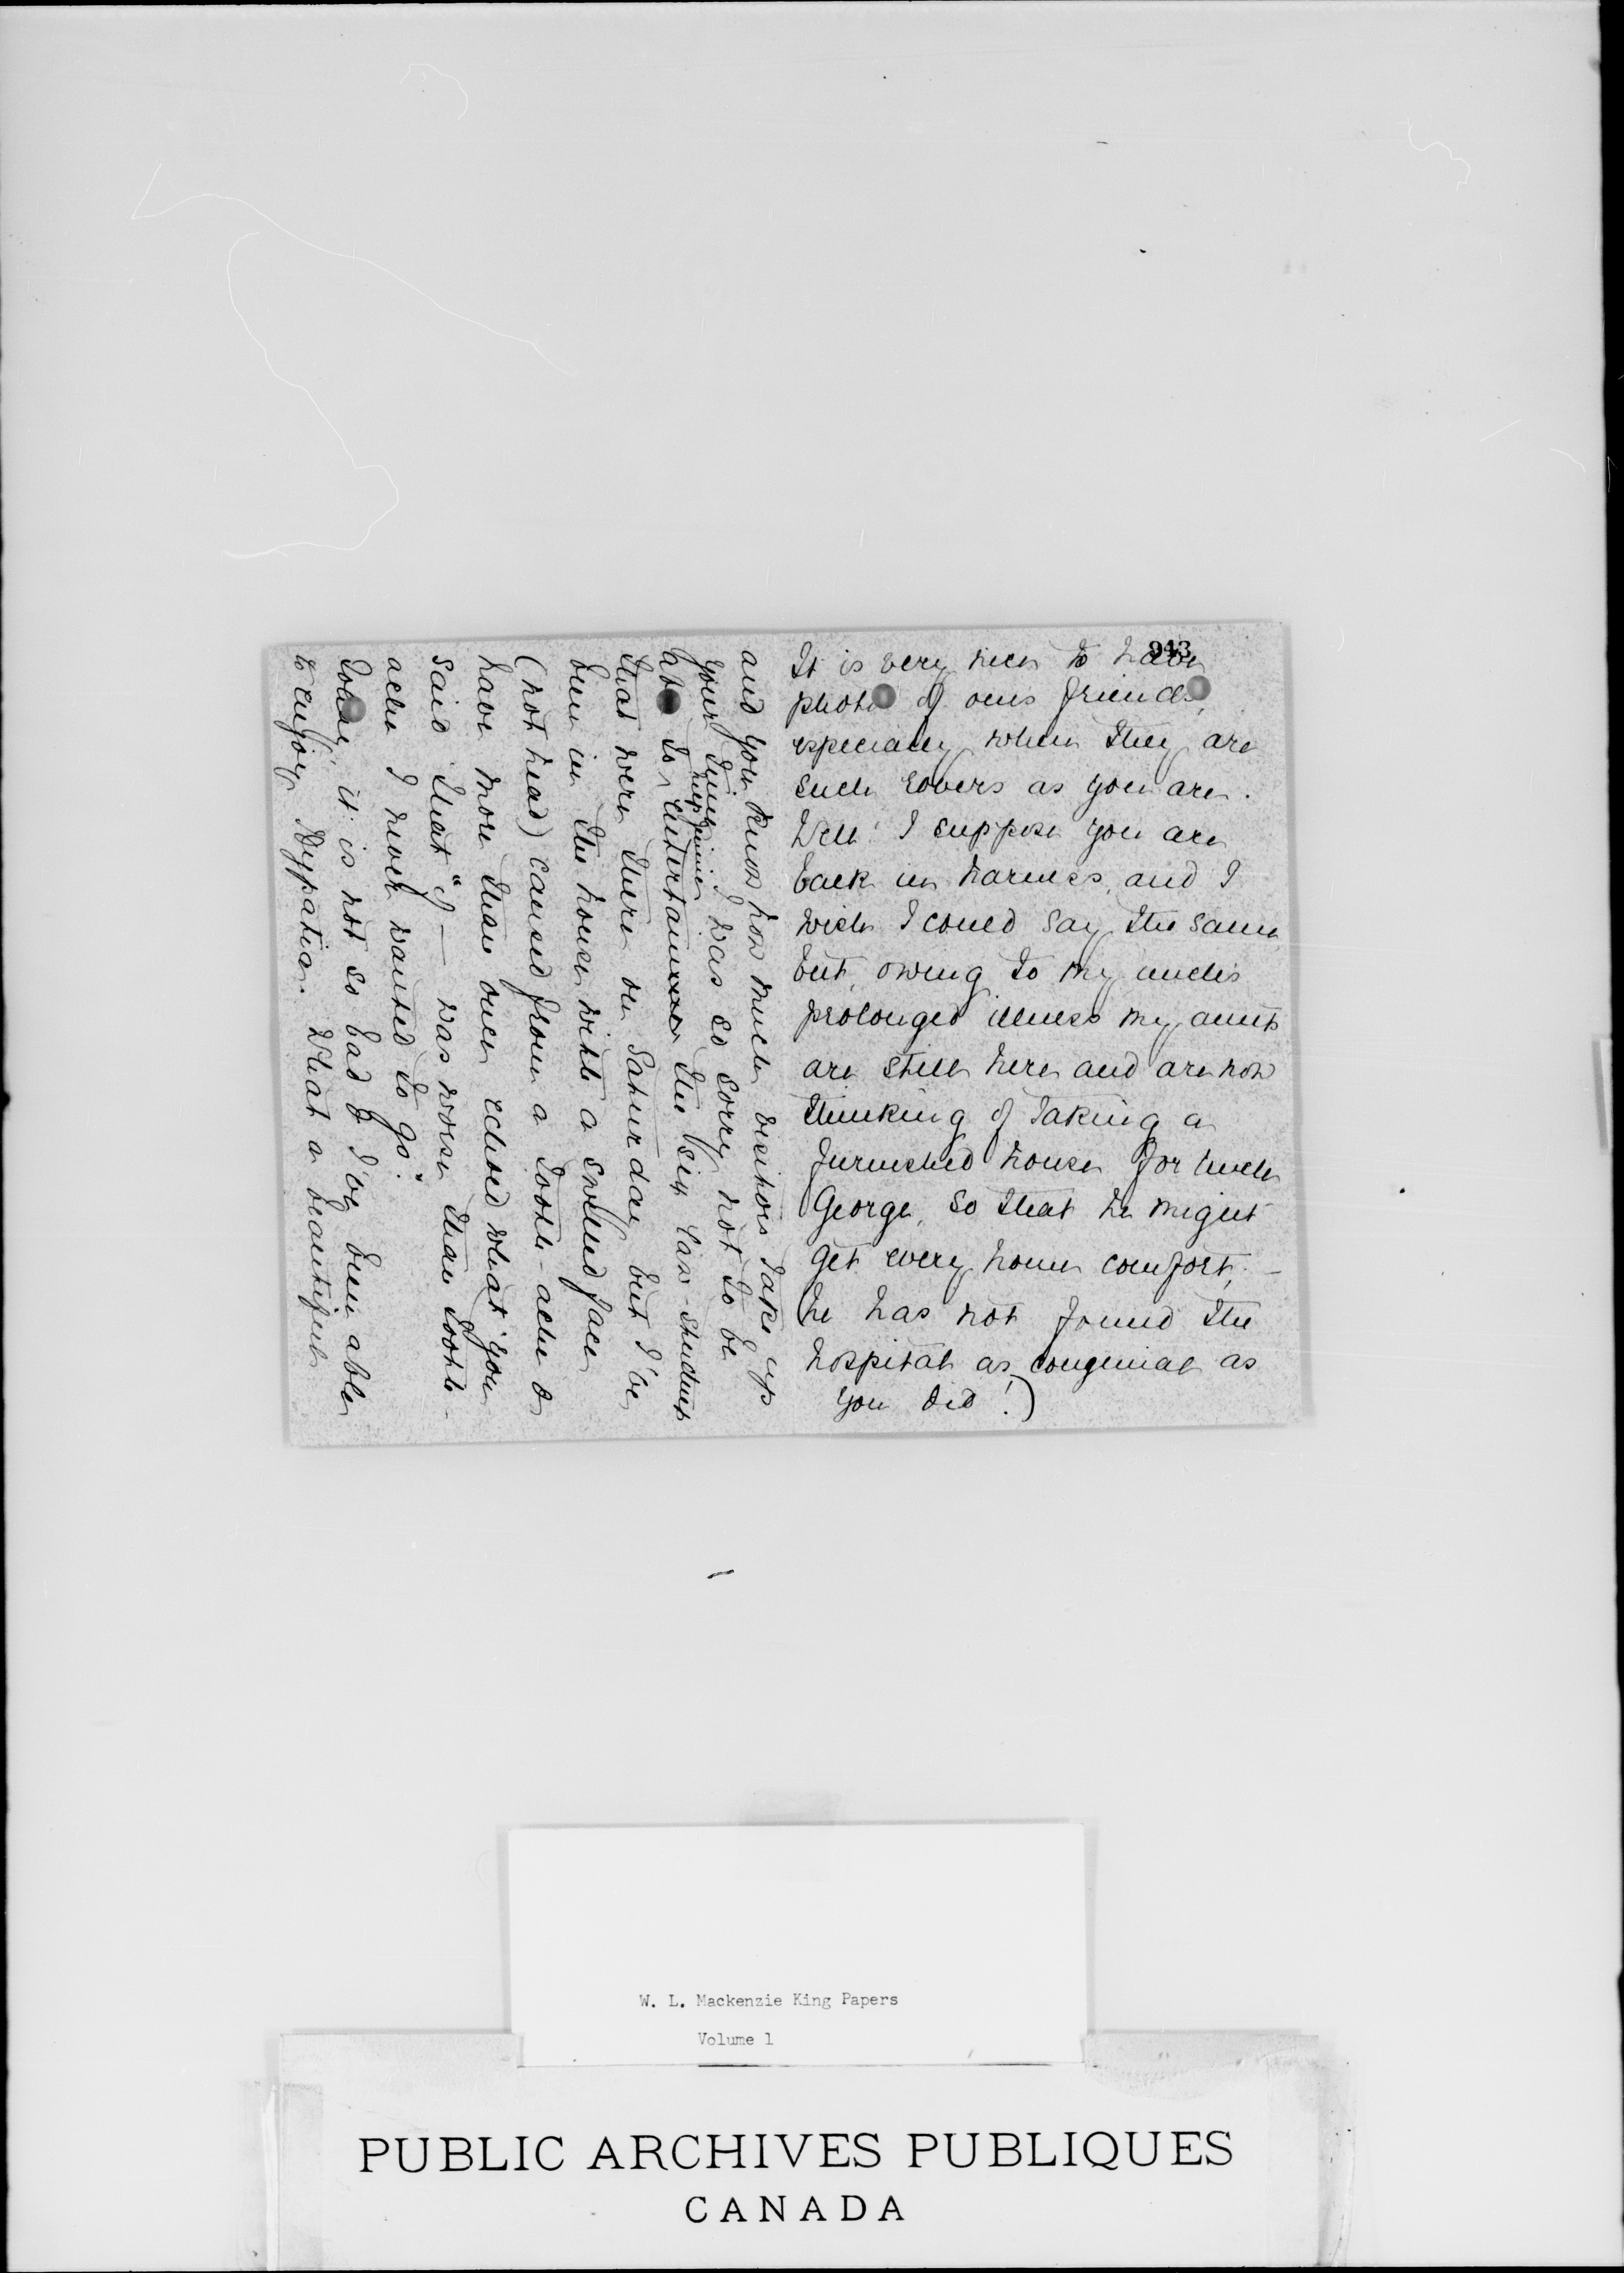 943
It is very nice to have
photo of ones friends,
especially when they are
such rovers as you are.
Well! I suppose you are
back in harness, and I
wish I could say the same
but, owing to my uncle's
prolonged illness my aunts
are still here and are now
thinking of taking a
furnished house for Uncle
George, so that he might
get every home comfort, —
he has not found the
hospital as congenial as
you did!)
and you know how much visitors take up
your time I was so sorry not to be
able to entertain the six law-students
that were there on Saturday but I've
been in the house with a swollen face
(not head) caused from a tooth-ache &
have more than once echoed what you
said that "if — was worse than tooth-
ache I never wanted to go."
Today it is not so bad & I've been able
to enjoy Hypatia. What a beautiful
W. L. Mackenzie King Papers
Volume 1
PUBLIC ARCHIVES PUBLIQUES
CANADA